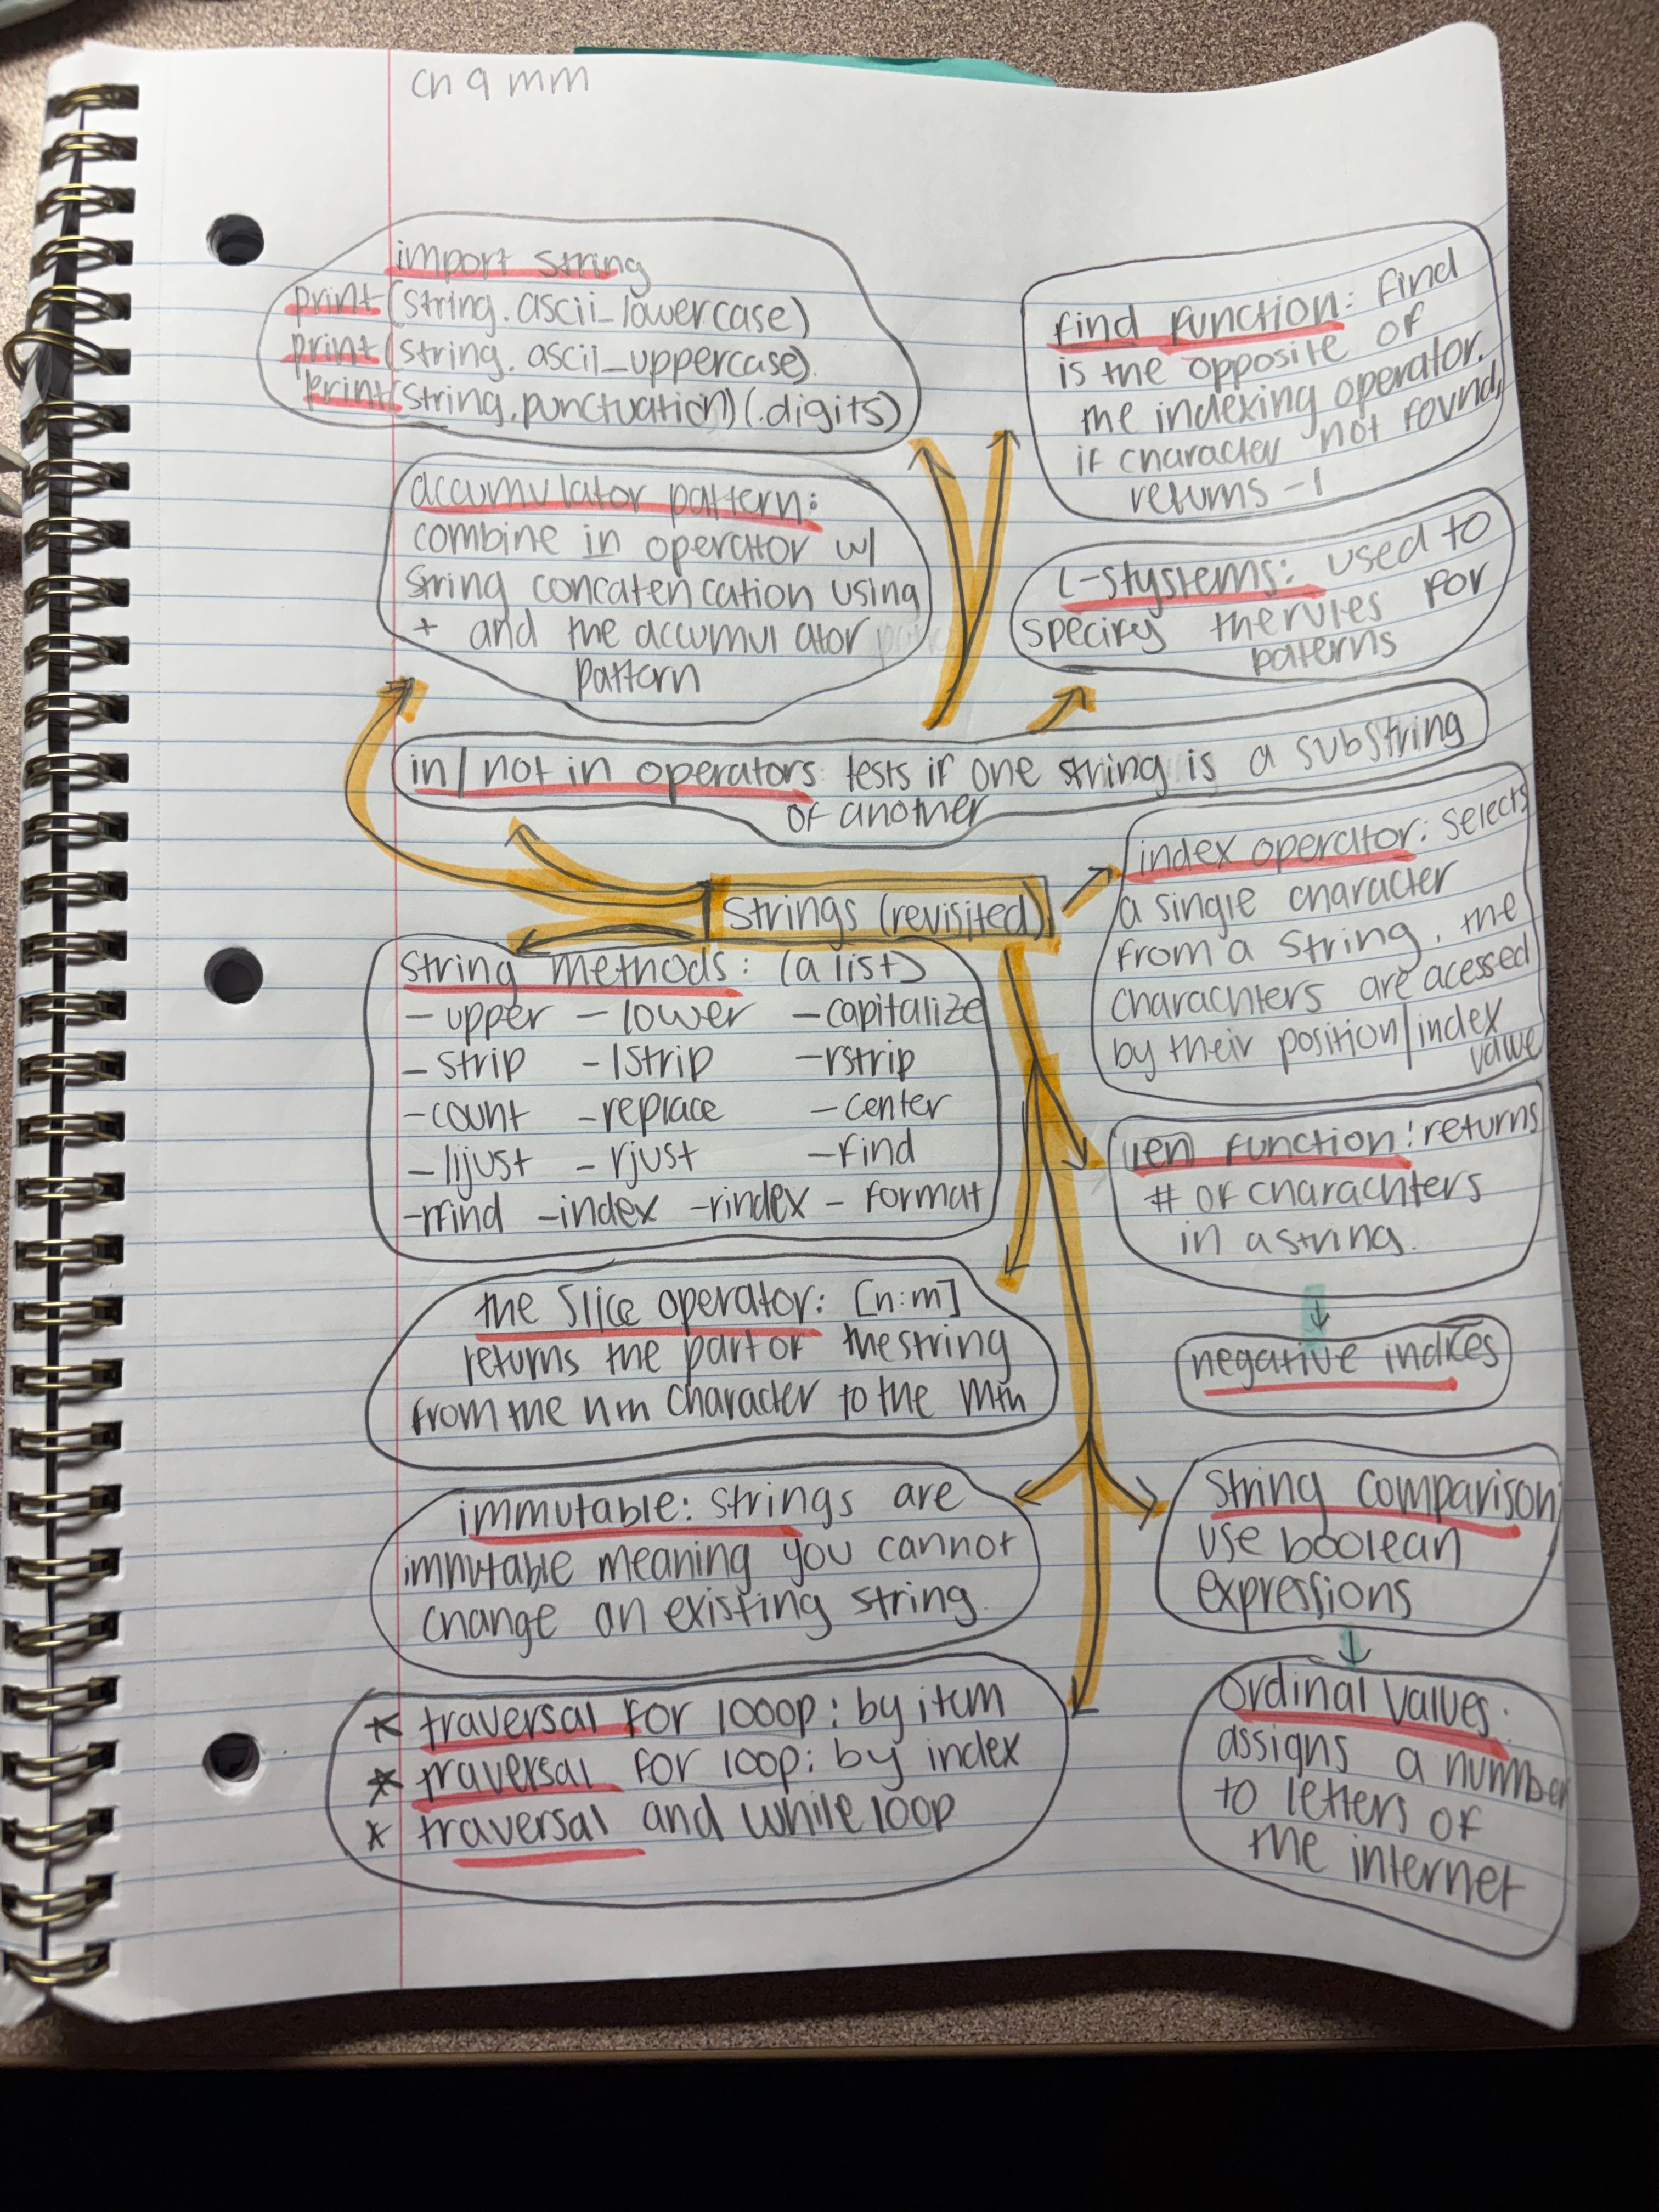 cn 9 mm
import string
print(string.ascii_lowercase)
print(string.ascii_uppercase)
print(string.punctuation)(.digits)
find function: find
is the opposite of
the indexing operator.
if character not found,
returns -1
accumulator pattern:
combine in operator w/
string concatencation using
+ and the accumulator
pattern
L-stystems: used to
specify the rules for
paterns
in/not in operators: tests if one string is a substring
of another
strings (revisited)
index operator: selects
a single character
from a string. the
charachters are acessed
by their position/index
value
string methods: (a list)
- upper - lower - capitalize
- strip - lstrip - rstrip
- count - replace - center
- lijust - rjust - find
- rfind - index - rindex - format
len function: returns
# of charachters
in a string.
negative indices
the slice operator: [n:m]
returns the part of the string
from the nth character to the mth
immutable: strings are
immutable meaning you cannot
change an existing string.
string comparison
use boolean
expressions
ordinal values:
assigns a number
to letters of
the internet
* traversal for looop: by item
* traversal for loop: by index
* traversal and while loop